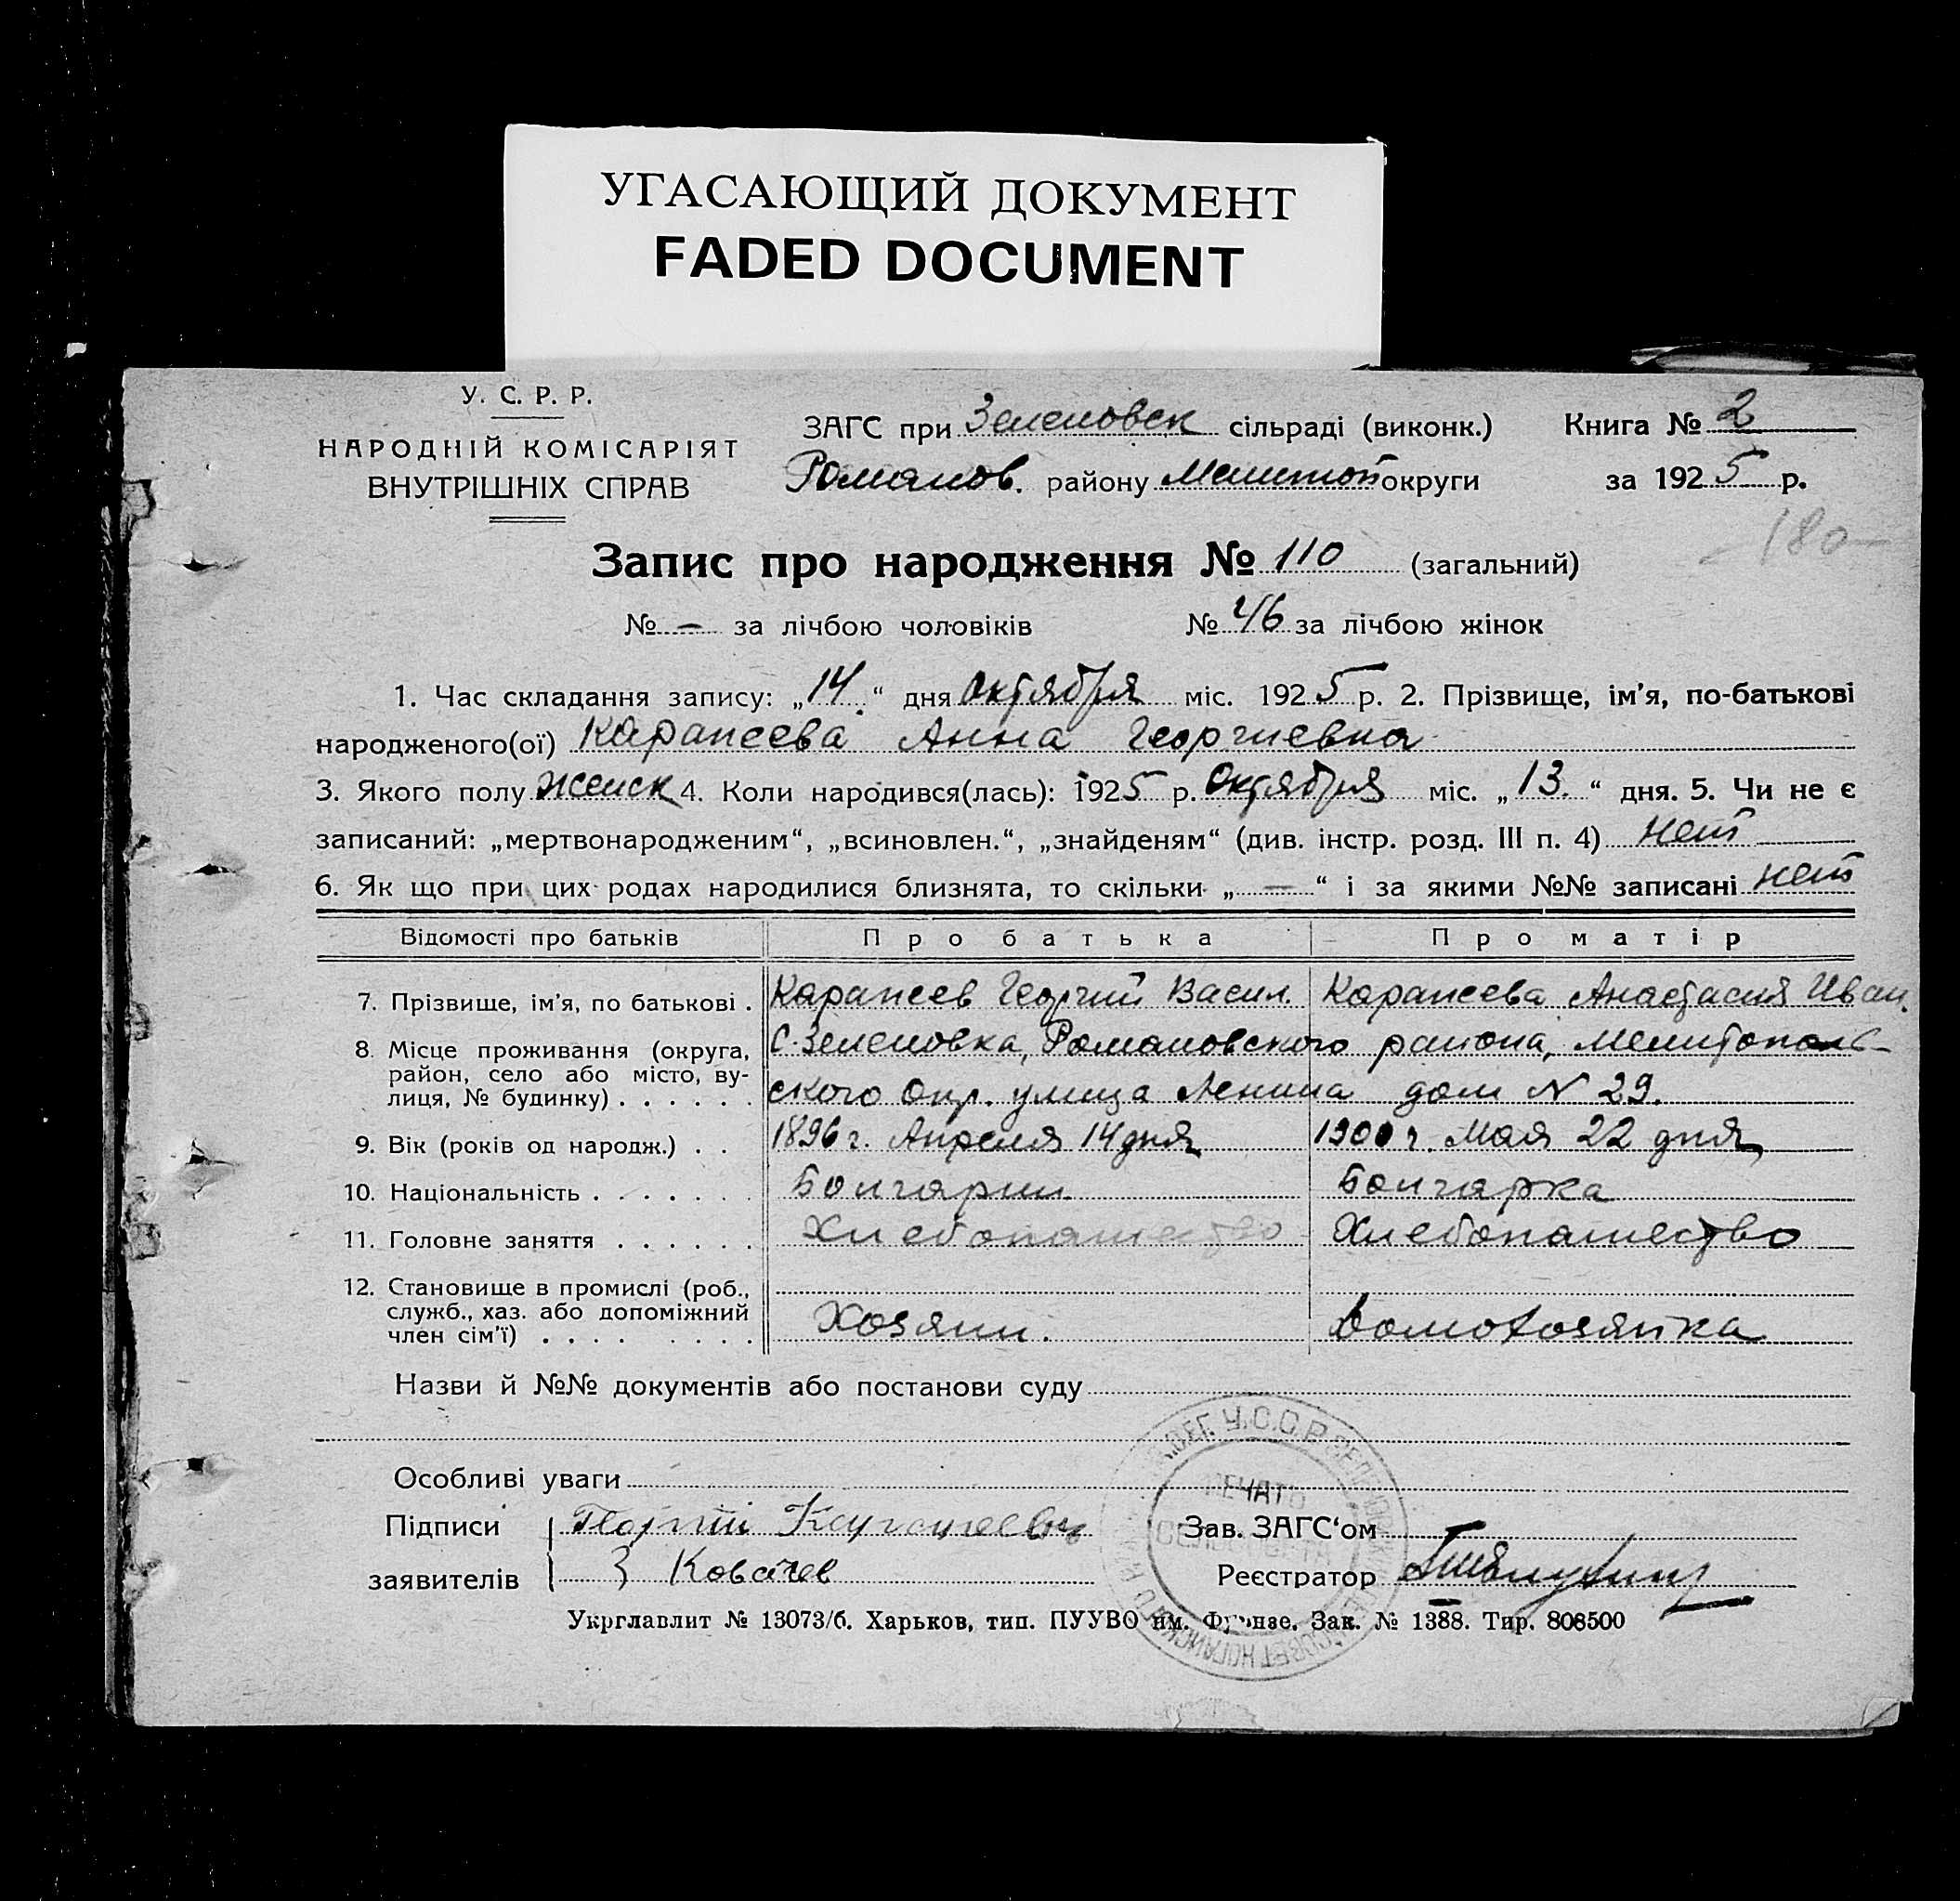 УГАСАЮЩИЙ ДОКУМЕНТ
FADED DOCUMENT
У. С. Р. Р.
НАРОДНІЙ КОМІСАРІЯТ
ВНУТРІШНІХ СПРАВ
ЗАГС при Зеленовск сільраді (виконк.) Книга № 2
Романов. району Мелитоп округи за 1925 р.
180
Запис про народження № 110 (загальний)
№ — за лічбою чоловіків № 46 за лічбою жінок
1. Час складання запису: „14.“ дня октября міс. 1925 р. 2. Прізвище, ім'я, по-батькові
народженого(ої) Карапеева Анна Георгиевна
3. Якого полу женск 4. Коли народився(лась): 1925 р. октября міс. „13.“ дня. 5. Чи не є
записаний: „мертвонародженим“, „всиновлен.“, „знайденям“ (див. інстр. розд. III п. 4) нет
6. Як що при цих родах народилися близнята, то скільки „—“ і за якими №№ записані нет
Відомості про батьків Про батька Про матір
7. Прізвище, ім'я, по батькові . Карапеев Георгий Васил. Карапеева Анастасия Иван.
8. Місце проживання (округа, район, село або місто, вулиця, № будинку) . . . . . .
с. Зеленовка, Романовского района, Мелитополь-
ского Окр. улица Ленина дом N 29.
9. Вік (років од народж.) . . 1896 г. Апреля 14 дня 1900 г. Мая 22 дня
10. Національність . . . . . . . Болгарин Болгарка
11. Головне заняття . . . . . . Хлебопашество Хлебопашество
12. Становище в промислі (роб.,
служб., хаз. або допоміжний
член сім'ї) . . . . . . . . Хозяин. Домохозяйка
Назви й №№ документів або постанови суду
Особливі уваги
Підписи Георгий Карапеевъ Зав. ЗАГС'ом
заявителів З Ковачев Реєстратор
ПЕЧАТЬ
СЕЛЬСОВЕТА
Укрглавлит № 13073/б. Харьков, тип. ПУУВО им. Фрунзе. Зак. № 1388. Тир. 808500